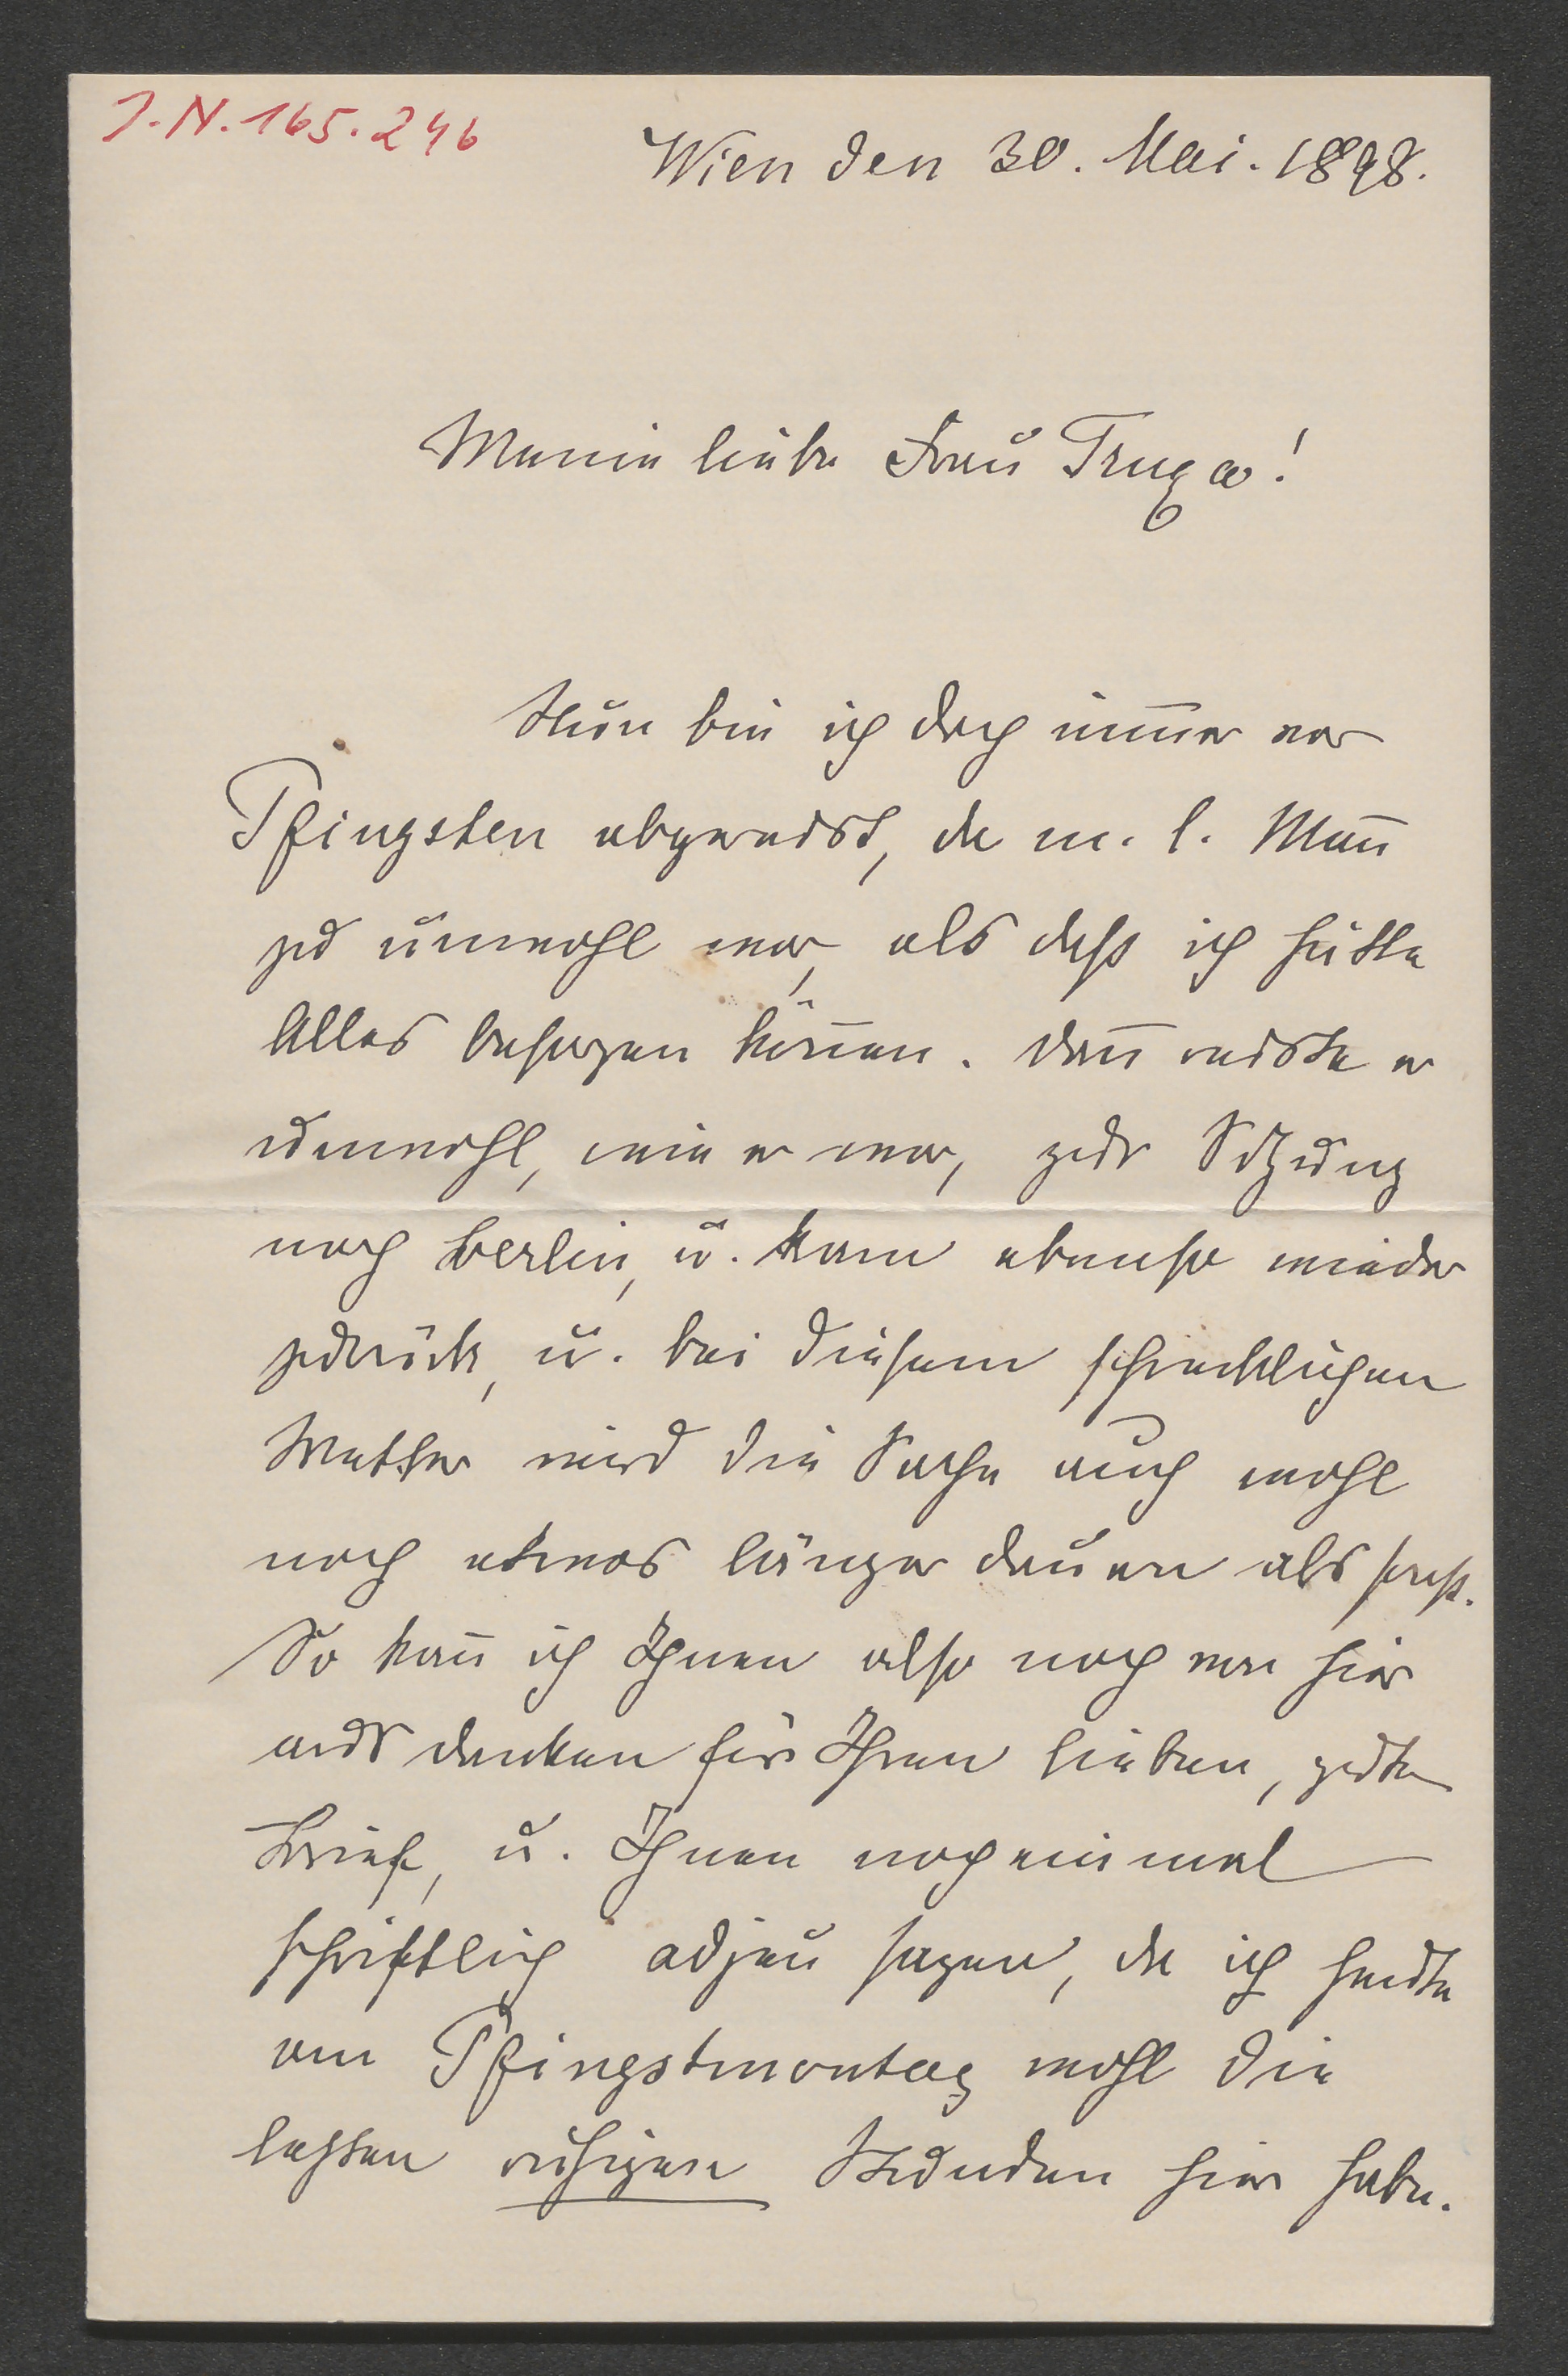 J.N. 165.246
Wien den 30. Mai. 1898.
Meine liebe Frau Truxa!
Nun bin ich doch nim̄er vor
Pfingsten abgereist, da m. l. Man̄
zu unwohl war, als daß ich hätte
Alles besorgen kön̄en. Dan̄ reiste er
unwohl, wie er war, zur Sitzung
nach Berlin, u. kam ebenso wieder
zurück, u. bei diesem schrecklichen
Wetter wird die Sache auch wohl
noch etwas länger dauern als sonst.
So kan̄ ich Ihnen also noch von hier
aus danken für Ihren lieben, guten
Brief, u. Ihnen nocheinmal
schriftlich adjeu sagen, da ich heute
am Pfingstmontag wohl die
letzten ruhigen Stunden hier habe.